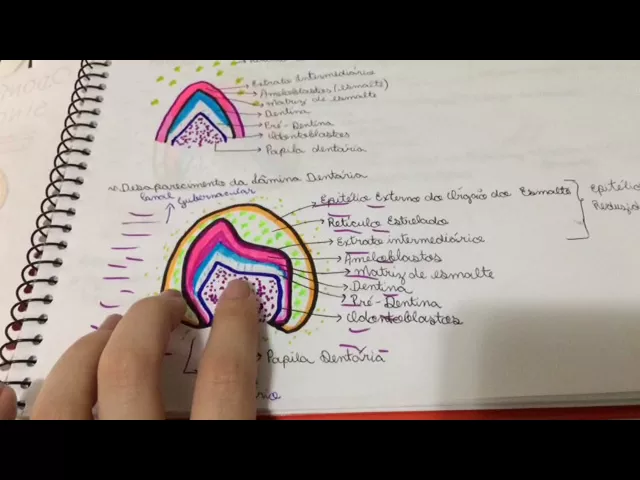 Extrato Intermediário
Ameloblastos (esmalte)
Matriz de esmalte
Dentina
Pré-Dentina
Odontoblastos
Papila dentária
Desaparecimento da Lâmina Dentária
Canal Gubernacular
Epitélio Externo do Órgão do Esmalte
Epitélio
Reduzido
Retículo Estrelado
Extrato intermediário
Ameloblastos
Matriz de esmalte
Dentina
Pré-Dentina
Odontoblastos
Papila Dentária